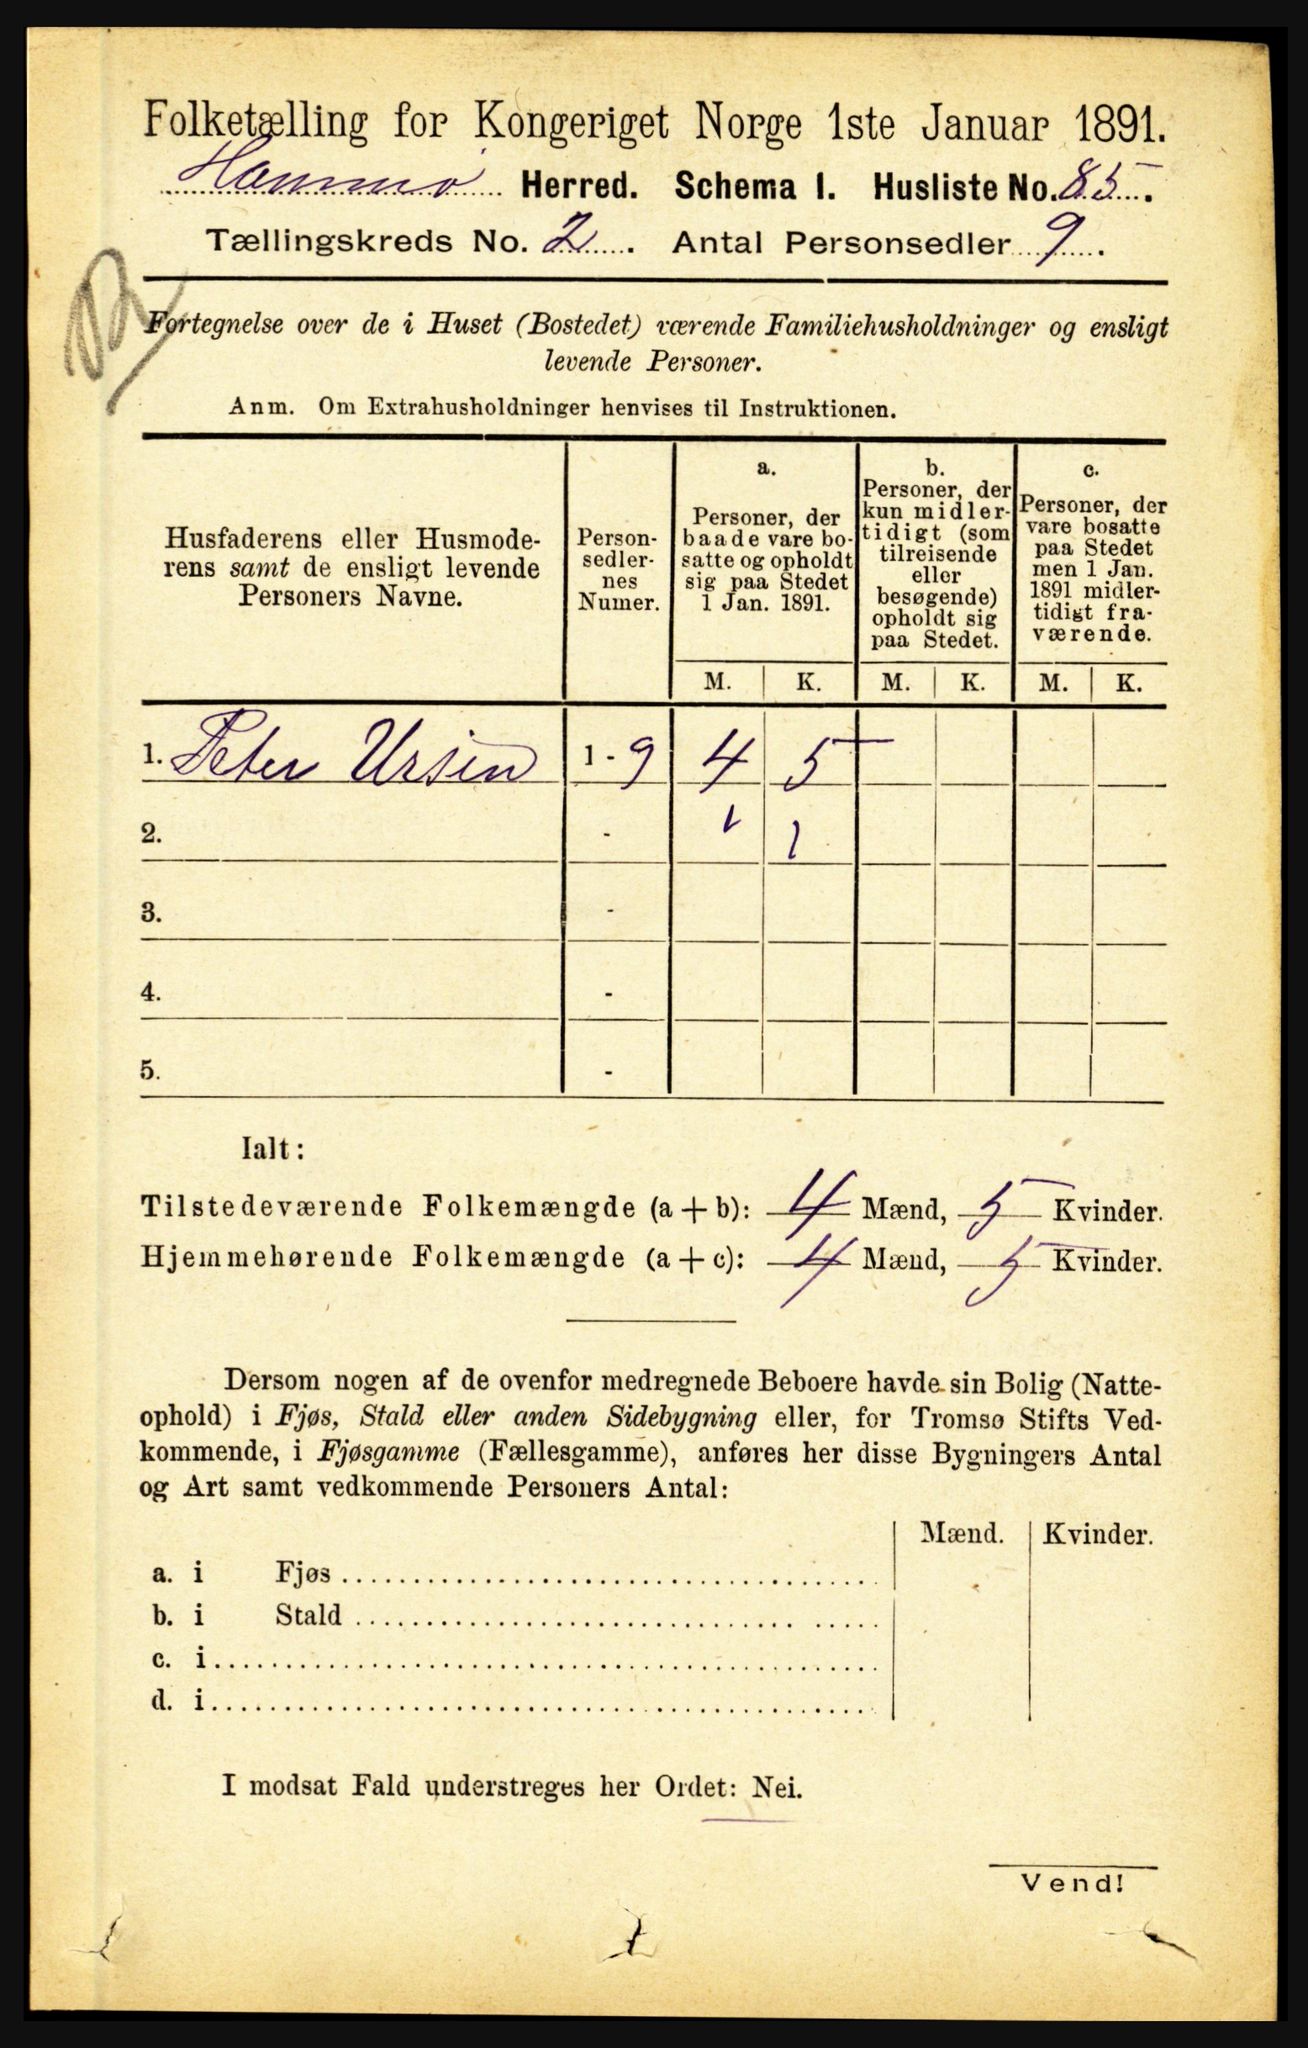 Folketælling for Kongeriget Norge 1ste Januar 1891.
Hammerø Herred. Schema I. Husliste No. 85.
Tællingskreds No. 2. Antal Personsedler 9.
Fortegnelse over de i Huset (Bostedet) værende Familiehusholdninger og ensligt
levende Personer.
Anm. Om Extrahusholdninger henvises til Instruktionen.
Husfaderens eller Husmode-
rens samt de ensligt levende
Personers Navne.
Person-
sedler-
nes
Numer.
a.
Personer, der
baade vare bo-
satte og opholdt
sig paa Stedet
1 Jan. 1891.
b.
Personer, der
kun midler-
tidigt (som
tilreisende
eller
besøgende)
opholdt sig
paa Stedet.
c.
Personer, der
vare bosatte
paa Stedet
men 1 Jan.
1891 midler-
tidigt fra-
værende.
M. K. M. K. M. K.
1. Peter Ursin 1 - 9 4 5
2. - 1 1
3. -
4. -
5. -
Ialt:
Tilstedeværende Folkemængde (a + b): 4 Mænd, 5 Kvinder.
Hjemmehørende Folkemængde (a + c): 4 Mænd, 5 Kvinder.
Dersom nogen af de ovenfor medregnede Beboere havde sin Bolig (Natte-
ophold) i Fjøs, Stald eller anden Sidebygning eller, for Tromsø Stifts Ved-
kommende, i Fjøsgamme (Fællesgamme), anføres her disse Bygningers Antal
og Art samt vedkommende Personers Antal:
Mænd. Kvinder.
a. i Fjøs
b. i Stald
c. i
d. i
I modsat Fald understreges her Ordet: Nei.
Vend!